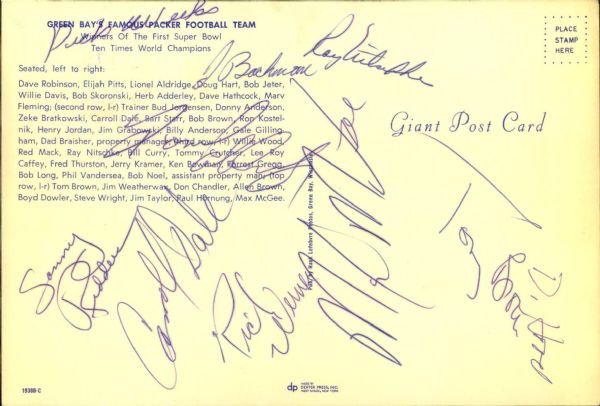 GREEN BAY'S FAMOUS PACKER FOOTBALL TEAM
Winners Of The First Super Bowl
Ten Times World Champions
PLACE
STAMP
HERE
Ray Nitschke
Seated, left to right:
Dave Robinson, Elijah Pitts, Lionel Aldridge, Doug Hart, Bob Jeter,
Willie Davis, Bob Skoronski, Herb Adderley, Dave Hathcock, Marv
Fleming; (second row, l-r) Trainer Bud Jorgensen, Donny Anderson,
Zeke Bratkowski, Carroll Dale, Bart Starr, Bob Brown, Ron Kostel-
nik, Henry Jordan, Jim Grabowski, Billy Anderson, Gale Gilling-
ham, Dad Braisher, property manager; (third row, l-r) Willie Wood,
Red Mack, Ray Nitschke, Bill Curry, Tommy Crutcher, Lee Roy
Caffey, Fred Thurston, Jerry Kramer, Ken Bowman, Forrest Gregg,
Bob Long, Phil Vandersea, Bob Noel, assistant property man; (top
row, l-r) Tom Brown, Jim Weatherwax, Don Chandler, Allen Brown,
Boyd Dowler, Steve Wright, Jim Taylor, Paul Hornung, Max McGee.
Giant Post Card
Carroll Dale
Sonny
Rich
19388-C
dp
MADE BY
DEXTER PRESS, INC.
WEST NYACK, NEW YORK